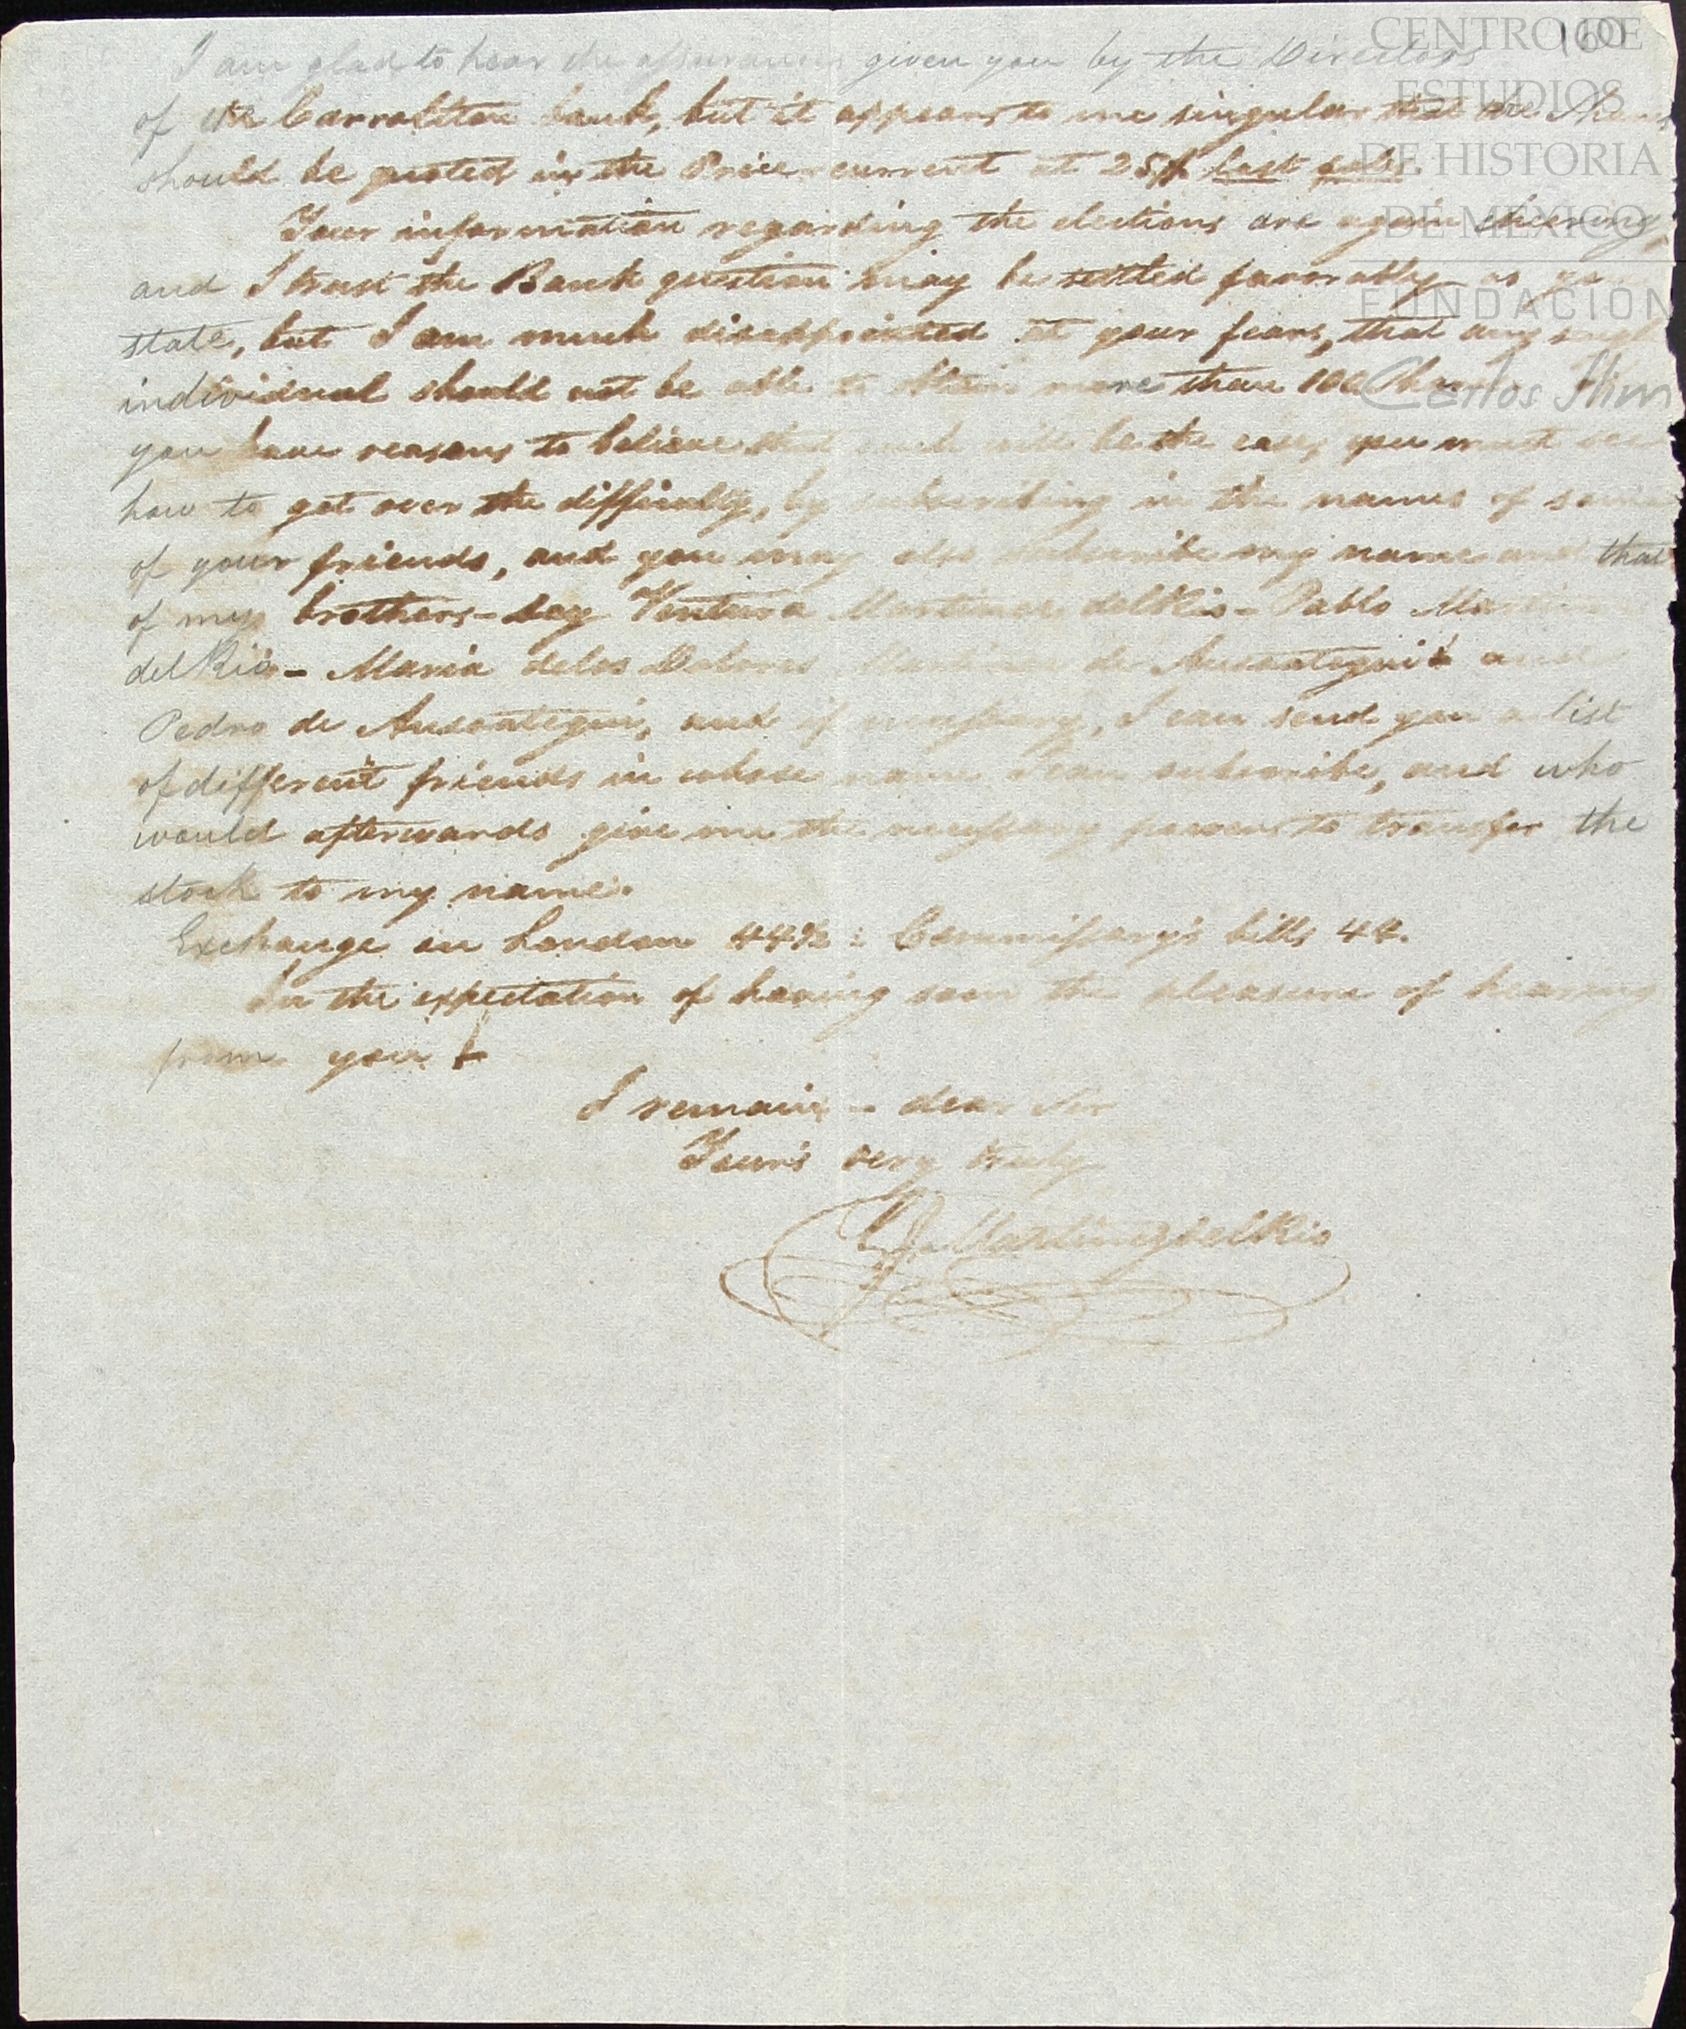 160
CENTRO DE
ESTUDIOS
DE HISTORIA
DE MEXICO
FUNDACION
Carlos Slim
I am glad to hear the assurances given you by the Directors
of the Carrollton bank, but it appears to me singular that the Shares
should be quoted in the Price current at 25 last sales.
Your information regarding the elections are again cheering,
and I trust the Bank question may be settled favorably as yo
state, but I am much disappointed at your fears, that any single
individual should not be able to obtain more than 100
you have reasons to believe that such will be the case, you must see
how to get over the difficulty, by subscribing in the names of some
of your friends, and you may also subscribe my name and that
of my brothers - Say Ventura Martinez del Rio - Pablo Martinez
del Rio - Maria de los Dolores Martinez de Ansoategui and
Pedro de Ansoategui, and if necessary, I can send you a list
of different friends in whose name I can subscribe, and who
would afterwards give me the necessary powers to transfer the
stock to my name.
Exchange on London 44½ : Commissary's bills 44.
In the expectation of having soon the pleasure of hearing
from you
I remain - dear Sir
Your's very truly
J. Martinez del Rio